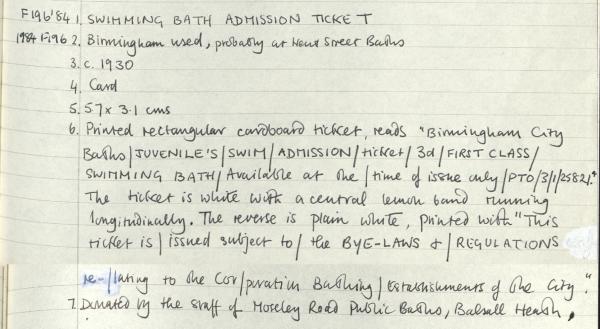 F196'84 1. SWIMMING BATH ADMISSION TICKET
1984 F196 2. Birmingham used, probably at Kent Street Baths
3. c. 1930
4. Card
5. 5.7 x 3.1 cms
6. Printed rectangular cardboard ticket, reads "Birmingham City
Baths/JUVENILE'S/SWIM/ADMISSION/ticket/3d/FIRST CLASS/
SWIMMING BATH/Available at the/time of issue only/PTO/3/1/25821."
The ticket is white with a central lemon band running
longitudinally. The reverse is plain white, printed with "This
ticket is/issued subject to/the BYE-LAWS &/REGULATIONS
re-/lating to the Cor/poration Bathing/Establishments of the City".
7. Donated by the staff of Moseley Road Public Baths, Balsall Heath,